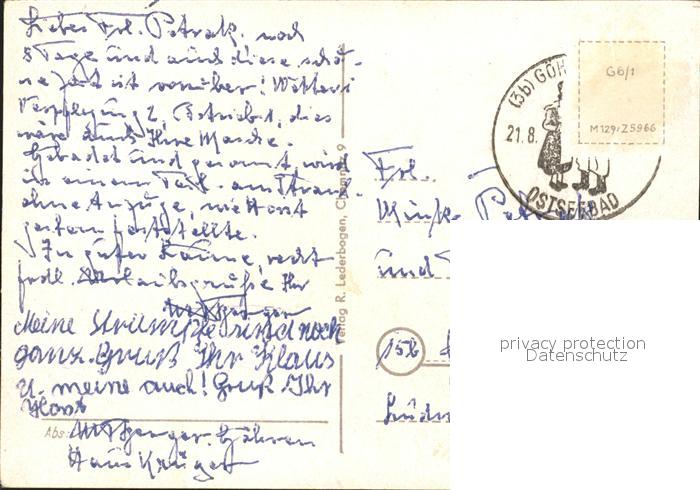 Liebes Frl. Petrak. noch
8 Tage und auch diese schö-
ne Zeit ist vorüber! Wetter 1
Verpflegung 2, Betrieb 1, dies
wäre auch Ihre Masche.
Gebadet und gesonnt wird
in einem Teil am Strand
ohne Anzüge, wie Horst
gestern feststellte.
In guter Laune, recht
frdl. Urlaubsgrüße Ihr
Meine Strümpfe sind noch
ganz. Gruß Ihr Klaus
u. meine auch! Gruß Ihr
Horst
Abs.
Göhren
Haus Krüger
Verlag R. Lederbogen, Chemnitz 9
(3b) GÖH
21.8.
OSTSEEBAD
G6/1
M129/Z5966
Frl.
und
15b
privacy protection
Datenschutz